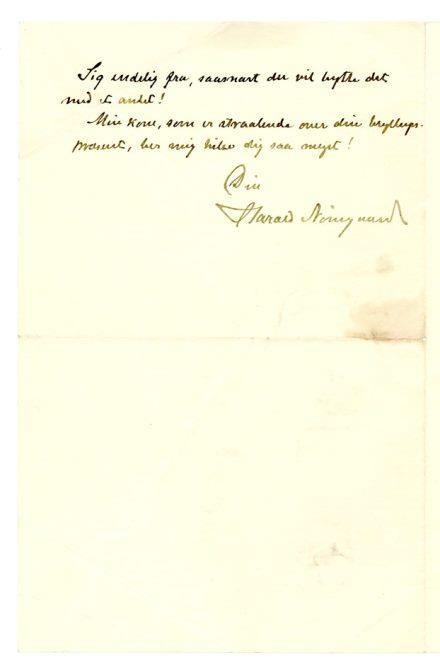 Sig endelig fra, saasnart du vil bytte det
med et andet!
Min kone, som er straalende over din bryllups-
præsent, ber mig hilse dig saa meget!
Din
Harald Nørregaard